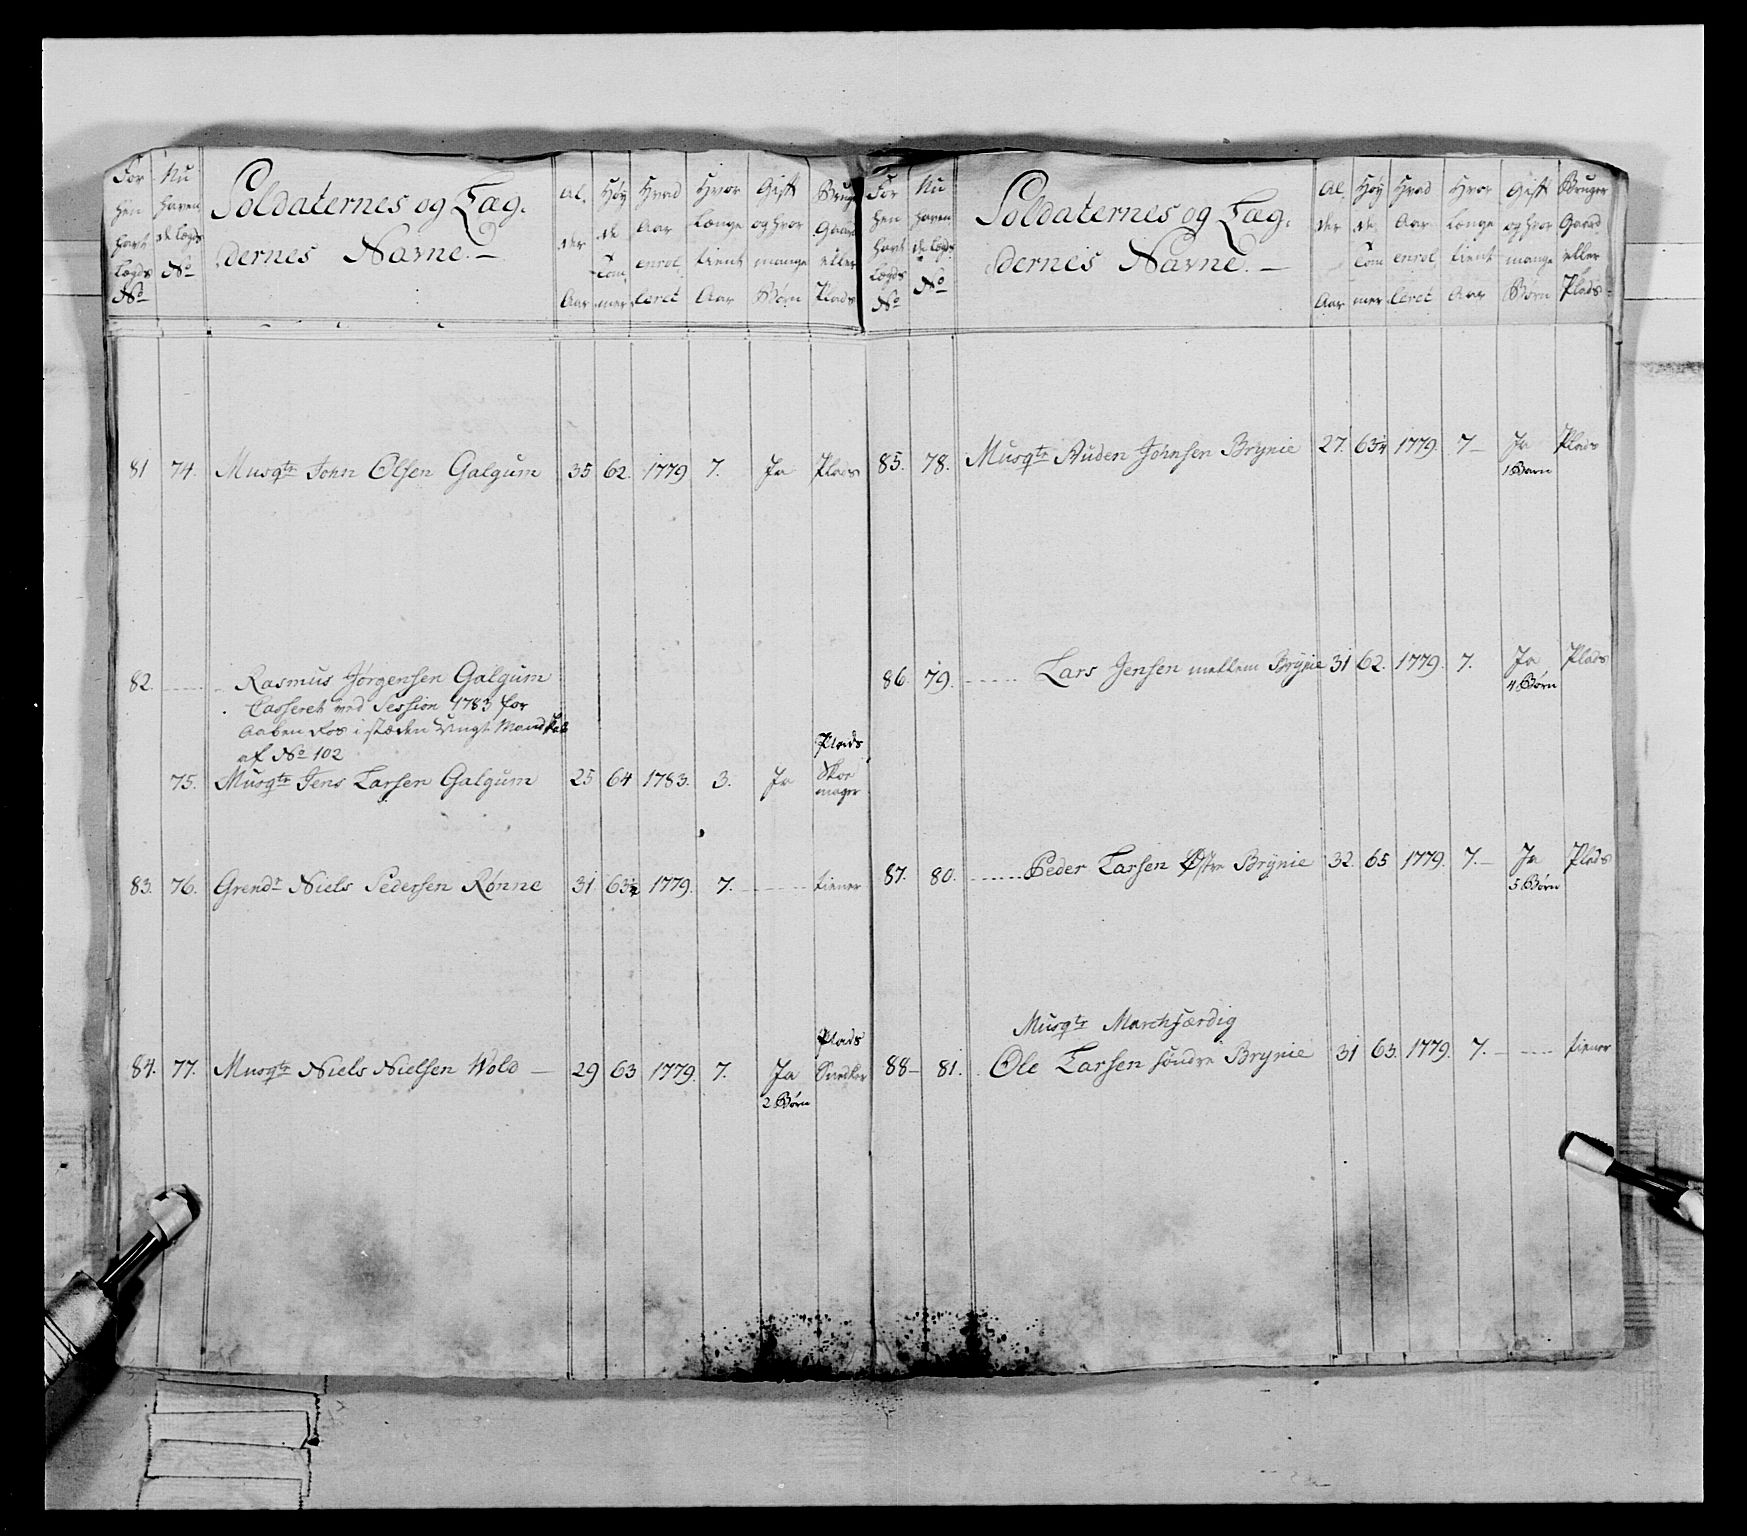 For
hen
havt
Lægds
No
Nu
haven
de Lægds
No
Soldaternes og Læg.
dernes Navne.—
Al.
der
Aar
Høy
de
Tom
mer
Hvad
Aar
enrol
leret
Hvor
Længe
tient
Aar
Gift
og hvor
mange
Børn
Bruger
Gaard
eller
Plads
81 74. Musqtr John Olsen Galgum 35 62. 1779 7. Ja Plads
82. Rasmus Jørgensen Galgum
Casseret ved Session 1783 for
Aaben Fos i stæden Ungt Mandskab
af No 102
Plads
75. Musqtr Jens Larsen Galgum 25 64 1783. 3. Ja Skoe
mager
83. 76. Grendr Niels Pedersen Rønne 31 63½ 1779. 7. tiener
Plads
84. 77. Musqtr Niels Nielsen Wold — 29 63 1779. 7. Ja Snedker
2 Børn
For
hen
havt
Lægds
No
Nu
haven
de Lægds
No
Soldaternes og Læg.
dernes Navne.—
Al.
der
Aar
Høy
de
Tom
mer
Hvad
Aar
enrol
leret
Hvor
Længe
tient
Aar
Gift
og hvor
mange
Børn
Bruger
Gaard
eller
Plads
85. 78. Musqtr Auden Johnsen Brynie 27. 63¼ 1779. 7— Ja Plads
1 Barn
86 79. Lars Jensen mellem Brynie 31 62. 1779. 7. Ja Plads
4 Børn
87. 80. Peder Larsen Østre Brynie 32. 65 1779. 7.— Ja Plads
5 Børn
Musqtr Marchfærdig
88— 81. Ole Larsen søndre Brynie 31 63. 1779. 7. — tiener